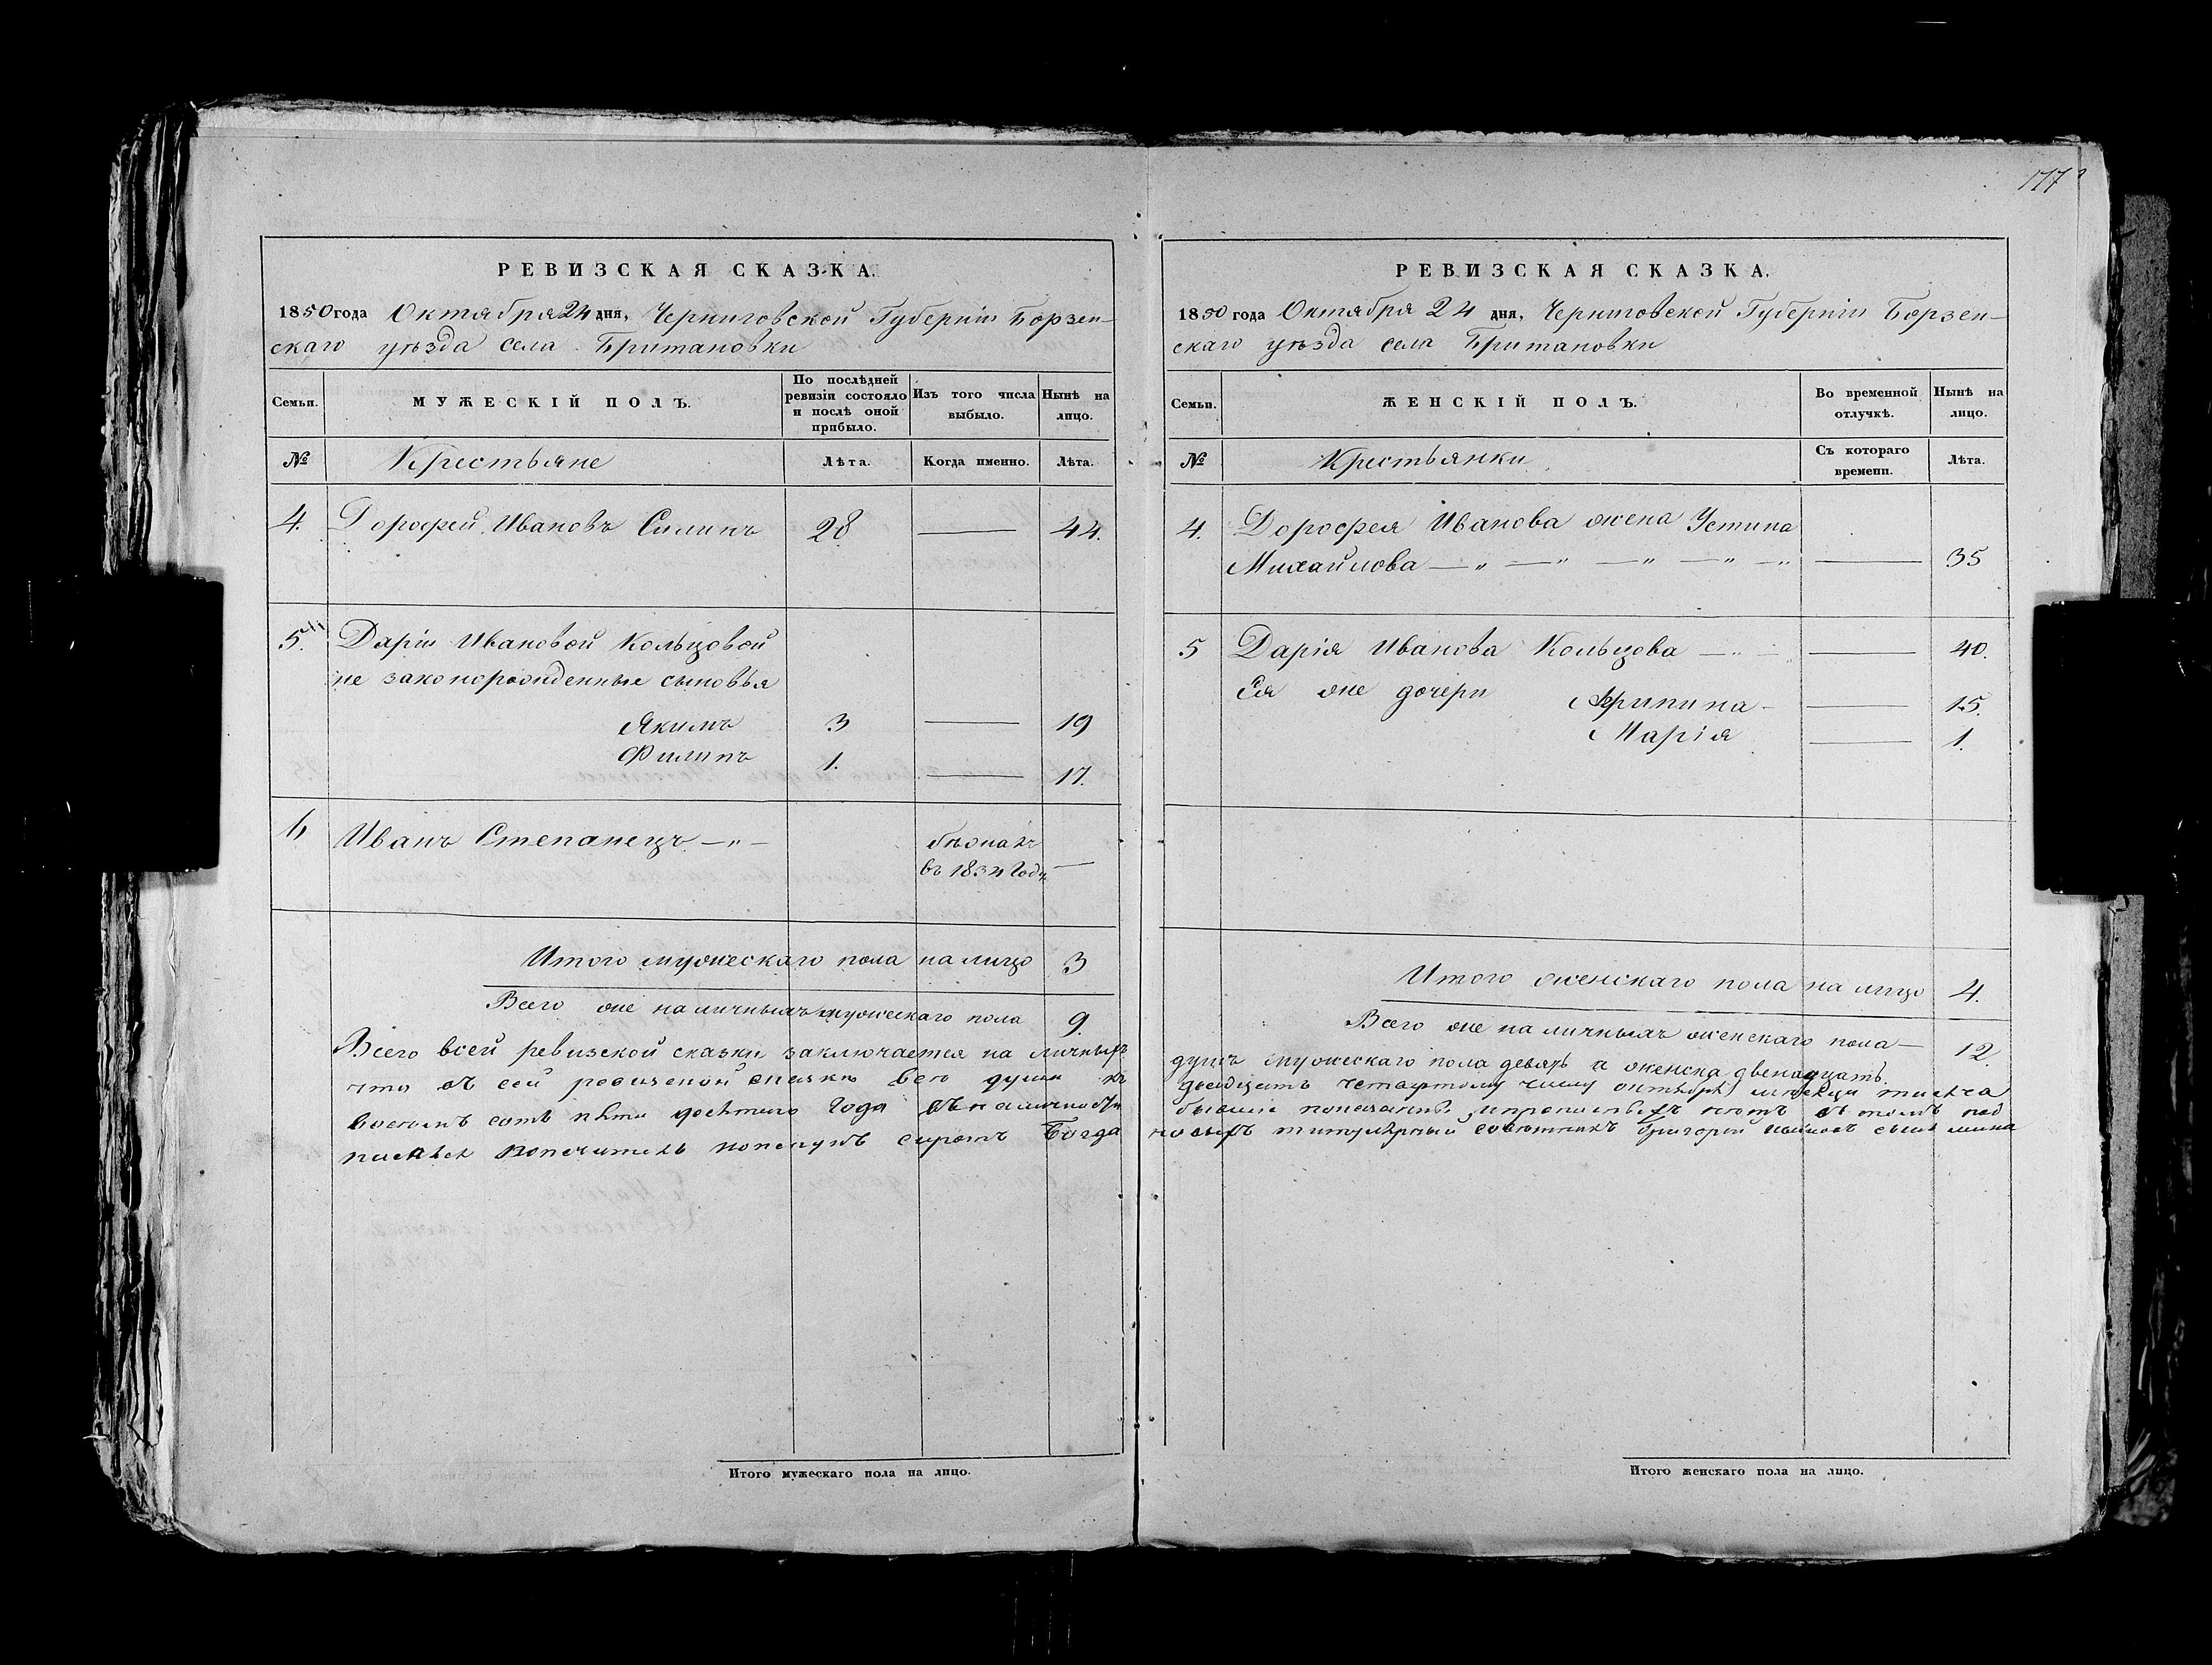 177
РЕВИЗСКАЯ СКАЗКА.
1850 года Октября 24 дня, Черниговской Губерніи Борзен-
скаго уѣзда села Британовки
Семьи. МУЖЕСКІЙ ПОЛЪ. По послѣдней ревизіи состояло и послѣ оной прибыло. Изъ того числа выбыло. Нынѣ на лицо.
№ Крестьяне Лѣта. Когда именно. Лѣта.
4. Дорофей Ивановъ Силинъ 28 — 44.
5. Даріи Ивановой Кольцовой
не законорожденные сыновья
Якимъ 3 — 19
Филипъ 1. — 17.
6 Иванъ Степанецъ —"— бѣжалъ
въ 1834 Году —
Итого мужескаго пола на лицо 3
Всего же на личныхъ мужескаго пола 9.
Всего всей ревизской сказки заключается на личныхъ
что въ сей ревизской сказке все души къ
восемъ сотъ пятидесятого года въ наличности
писался попечитель сиротъ Богда
РЕВИЗСКАЯ СКАЗКА.
1850 года Октября 24 дня, Черниговской Губерніи Борзен-
скаго уѣзда села Британовки
Семьи. ЖЕНСКІЙ ПОЛЪ. Во временной отлучкѣ. Нынѣ на лицо.
№ Крестьянки Съ котораго времени. Лѣта.
4. Дорофея Иванова жена Устина
Михайлова —"—"—"—"—" — 35
5 Дарія Иванова Кольцова —"— — 40.
Ея же дочери Агрипина — — 15.
Марія — 1.
Итого женскаго пола на лицо 4.
Всего же на личныхъ женскаго пола — 12.
душъ мужескаго пола девять а женска двенадцать.
двадцать четвертому числу октября месяца тысяча
бывшие показаны, и прописныхъ нѣтъ въ томъ под
новыхъ титулярный советникъ Григорий сынъ
Итого мужескаго пола на лицо.
Итого женскаго пола на лицо.